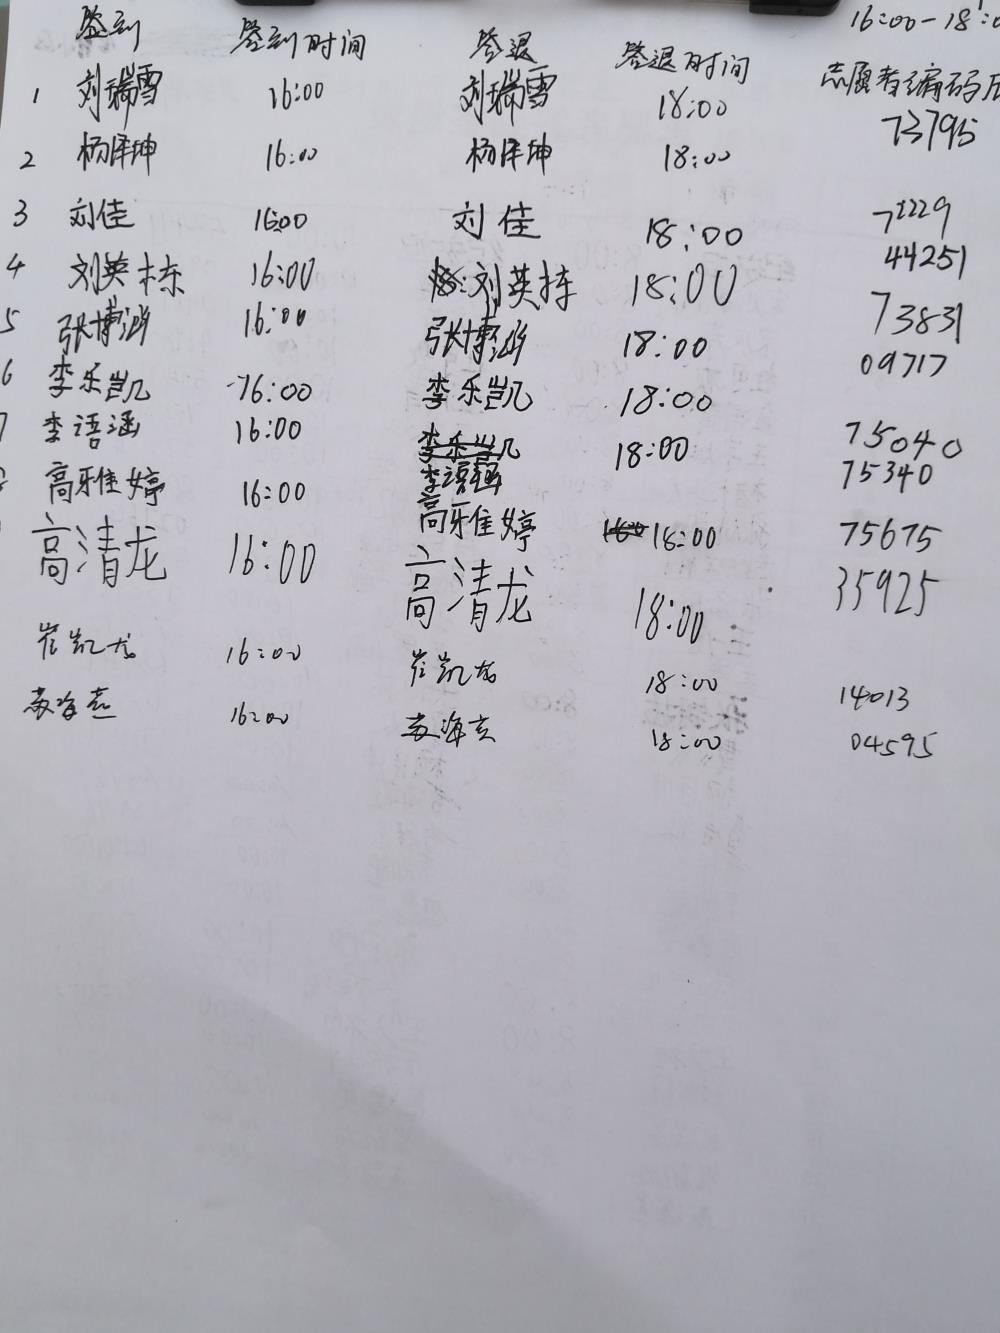 16:00-18:0
签到 签到时间 签退 签退时间 志愿者编码后
1 刘瑞雪 16:00 刘瑞雪 18:00 73795
2 杨泽坤 16:00 杨泽坤 18:00
3 刘佳 16:00 刘佳 18:00 72229
4 刘英栋 16:00 刘英栋 18:00 44251
5 张博涵 16:00 张博涵 18:00 73831
6 李乐凯 16:00 李乐凯 18:00 09717
7 李语涵 16:00 李乐凯 李语涵 18:00 75040
高雅婷 16:00 高雅婷 18:00 75340
高清龙 16:00 高清龙 18:00 75675
35925
崔凯龙 16:00 崔凯龙 18:00 14013
16:00 18:00 04595